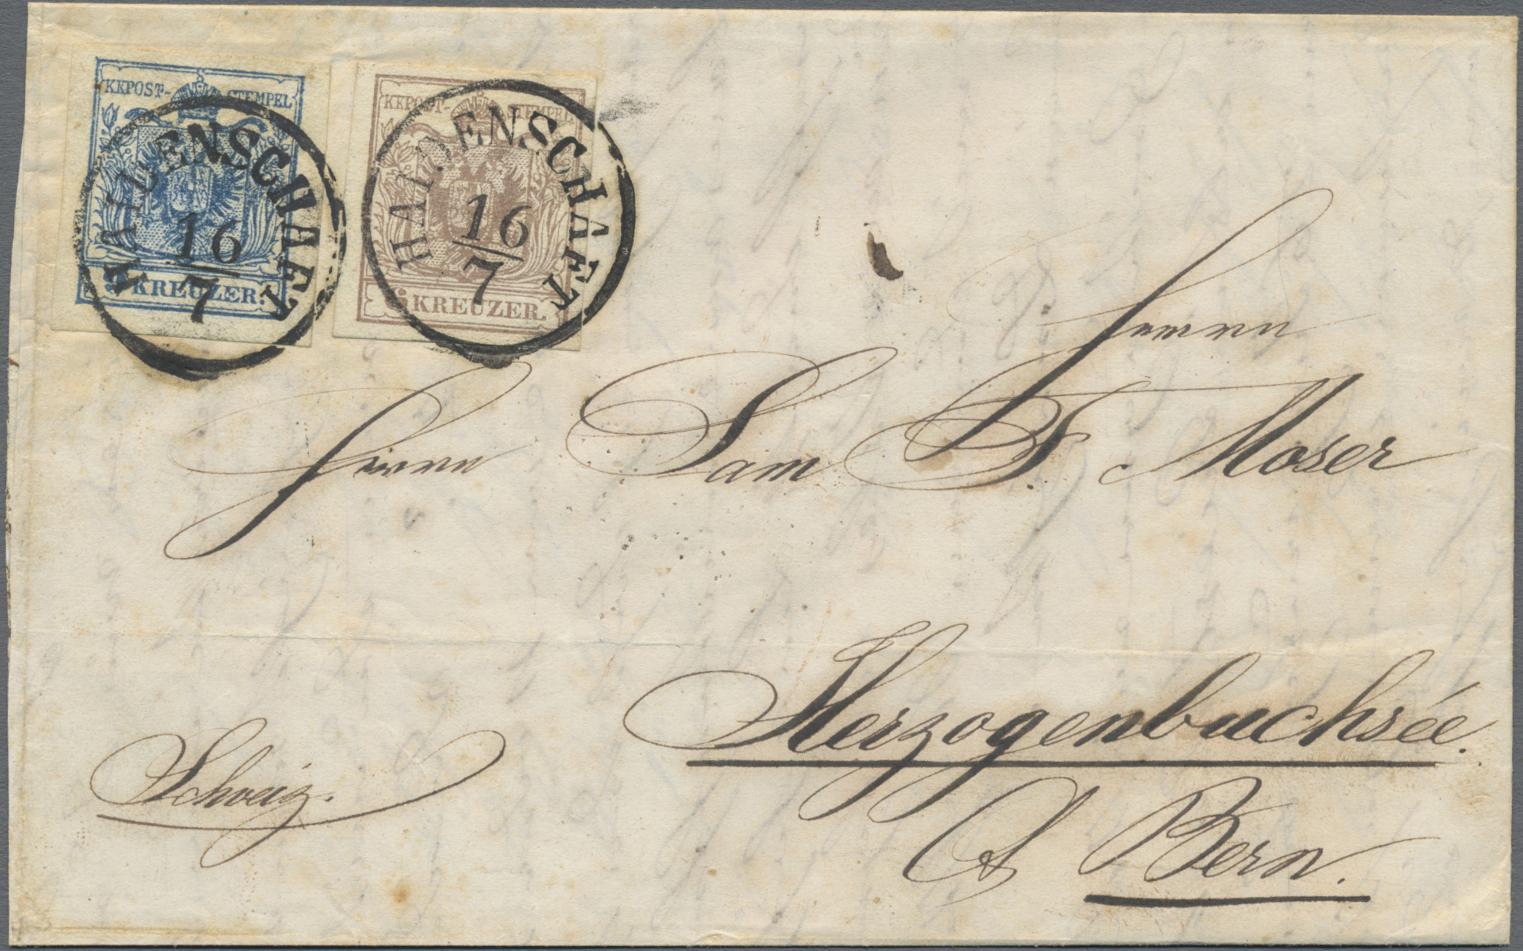 KKPOST-STEMPEL
HAIDENSCHAFT
16
7
KREUZER.
KKPOST-STEMPEL
HAIDENSCHAFT
16
7
6 KREUZER.
Herrn
Herrn Sam F. Moser
Herzogenbuchsée.
Schweiz.
Bern.